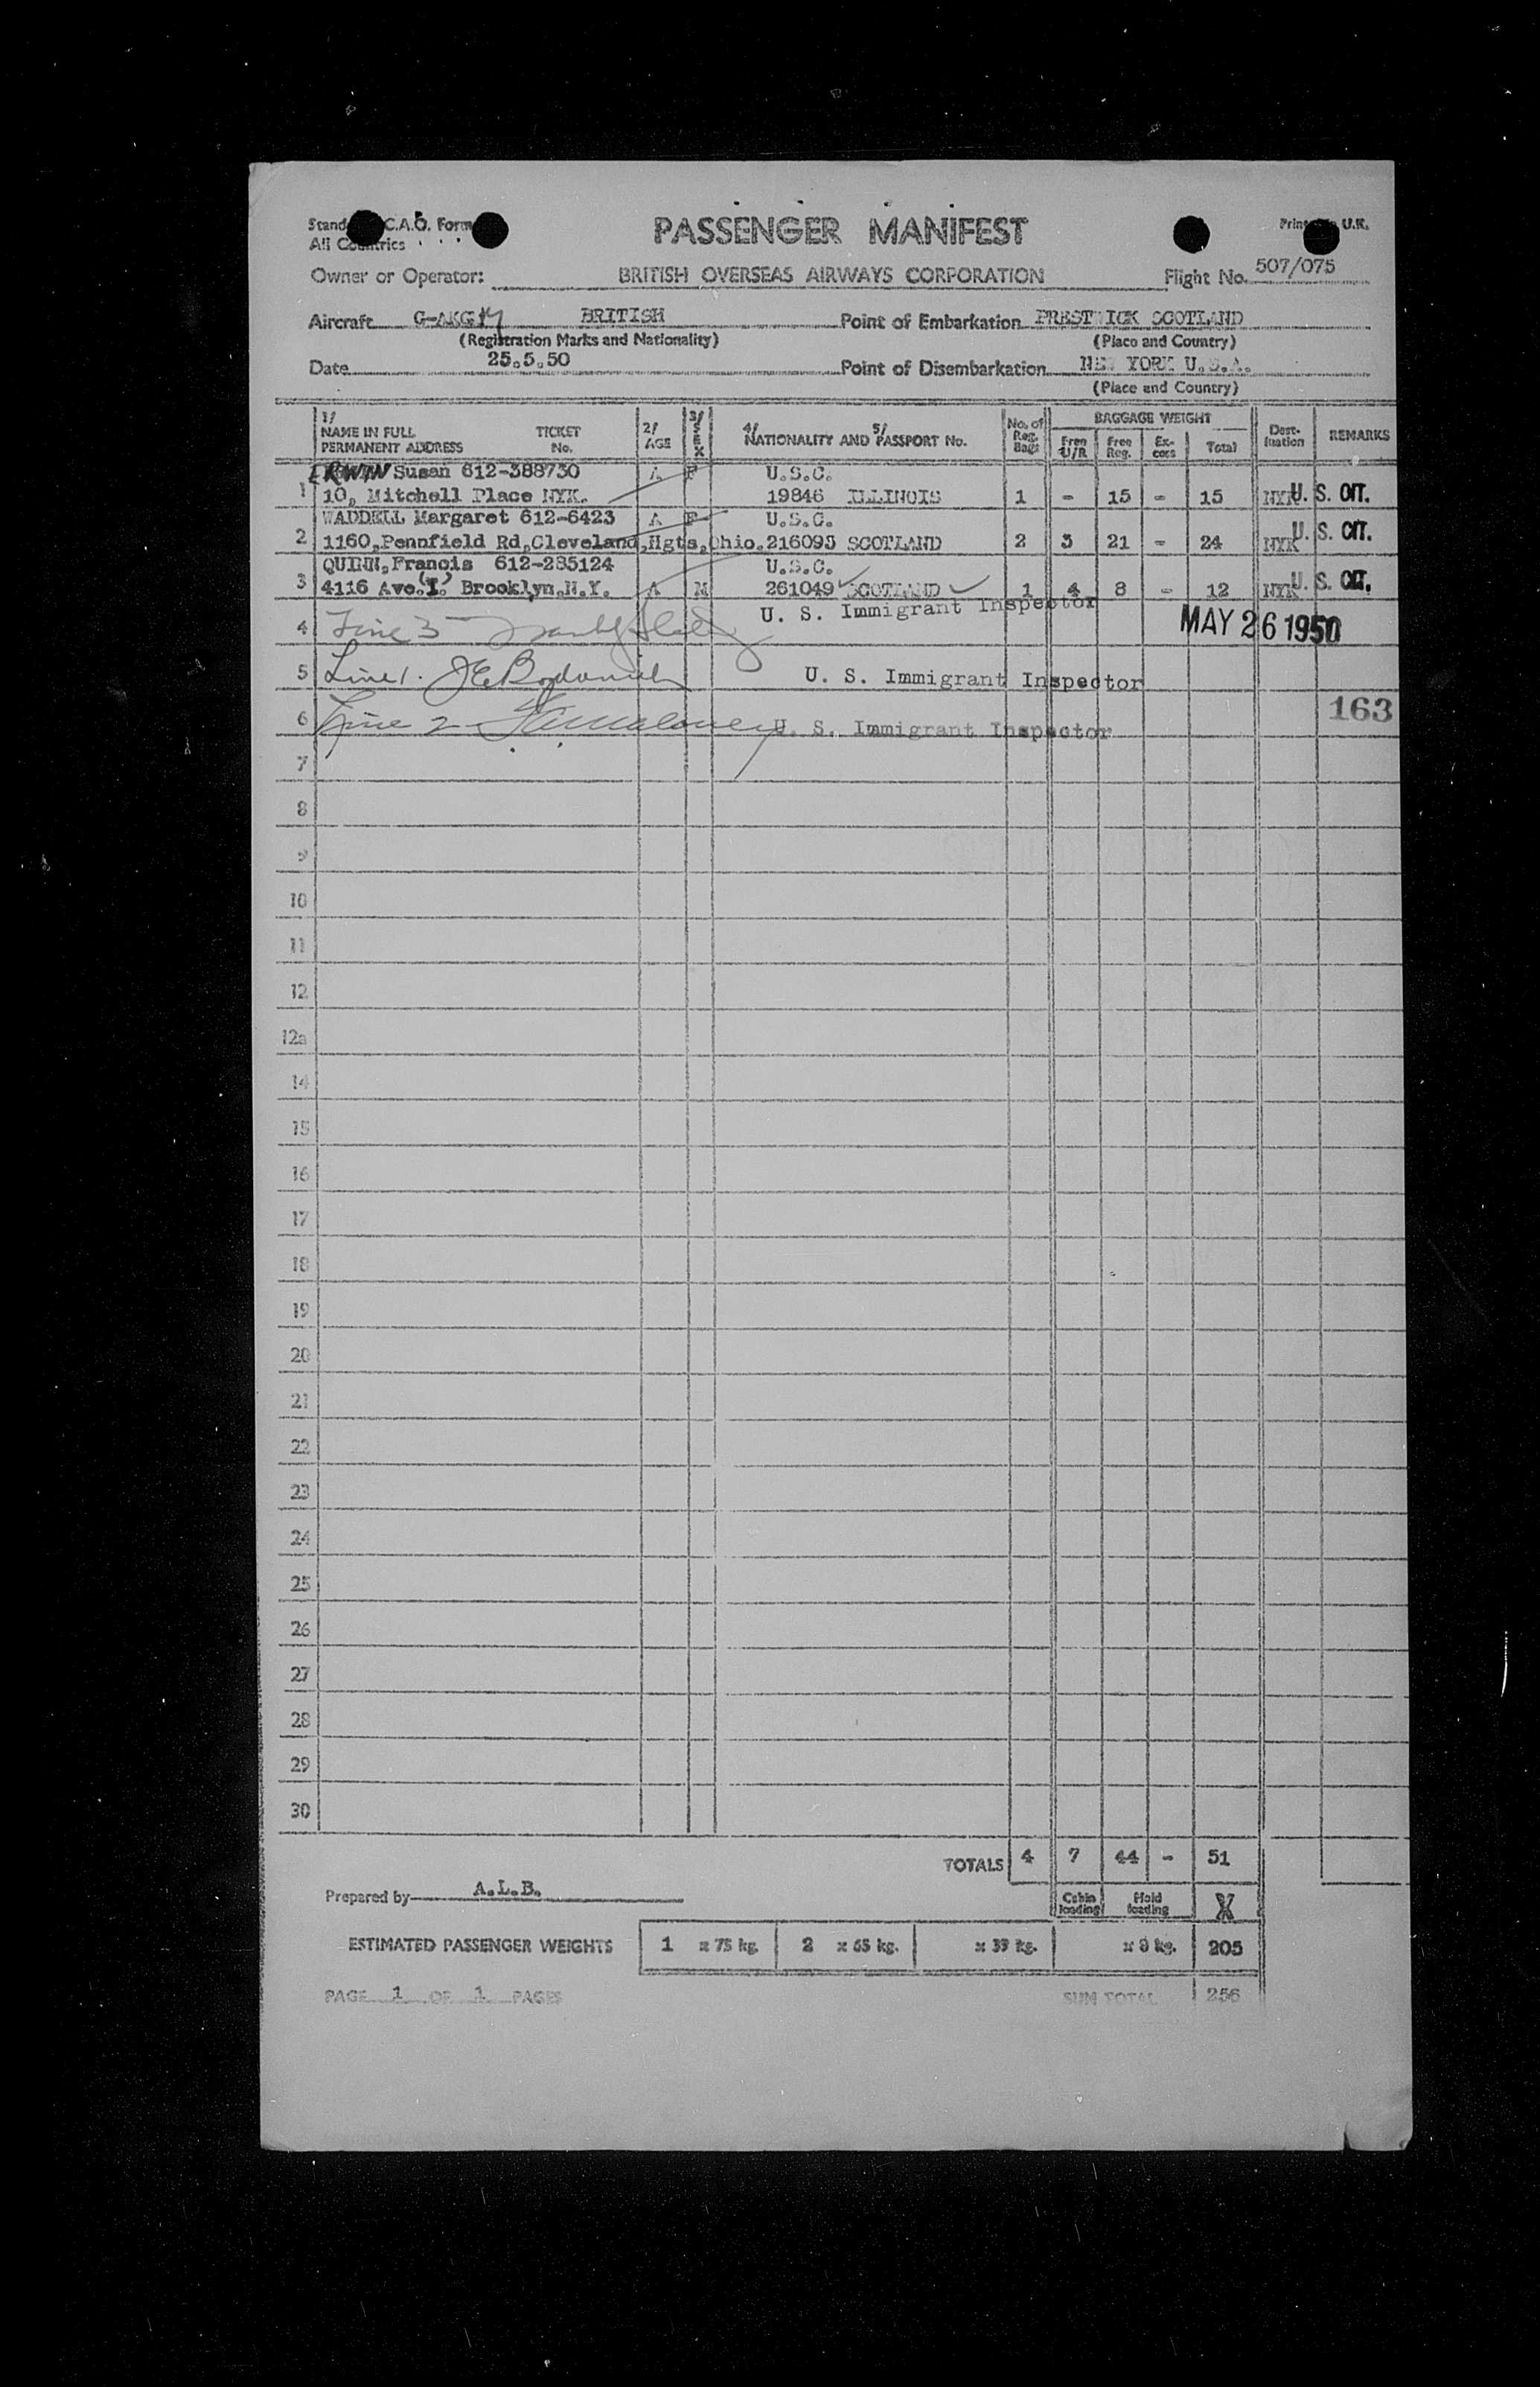 Stand C.A.O. Form
All Countries
PASSENGER MANIFEST
Printed in U.K.
Owner or Operator: BRITISH OVERSEAS AIRWAYS CORPORATION Flight No. 507/075
Aircraft G-AKGM BRITISH Point of Embarkation PRESTWICK SCOTLAND
(Registration Marks and Nationality) (Place and Country)
Date 25.5.50 Point of Disembarkation NEW YORK U.S.A.
(Place and Country)
1/ NAME IN FULL PERMANENT ADDRESS TICKET No. 2/ AGE 3/ SEX 4/ 5/ NATIONALITY AND PASSPORT No. No. of Reg. Bags BAGGAGE WEIGHT Free U/R Free Reg. Ex-cess Total Dest-ination REMARKS
ERWIN Susan 612-388730 A F U.S.C.
1 10, Mitchell Place NYK. 19846 ILLINOIS 1 - 15 - 15 NYK U. S. CIT.
WADDELL Margaret 612-6423 A F U.S.C.
2 1160,Pennfield Rd,Cleveland,Hgts,Ohio.216095 SCOTLAND 2 3 21 - 24 NYK U. S. CIT.
QUINN,Francis 612-285124 U.S.C.
3 4116 Ave.(I.) Brooklyn.N.Y. A M 261049 SCOTLAND 1 4 8 - 12 NYK U. S. CIT.
4 Line 3 U. S. Immigrant Inspector MAY 26 1950
5 Line 1. U. S. Immigrant Inspector
6 Line 2 U. S. Immigrant Inspector 163
7
8
9
10
11
12
12a
14
15
16
17
18
19
20
21
22
23
24
25
26
27
28
29
30
TOTALS 4 7 44 - 51
Prepared by A.L.B. Cabin loading Hold loading X
ESTIMATED PASSENGER WEIGHTS 1 x 75 kg. 2 x 65 kg. x 39 kg. x 8 kg. 205
PAGE 1 OF 1 PAGES SUM TOTAL 256